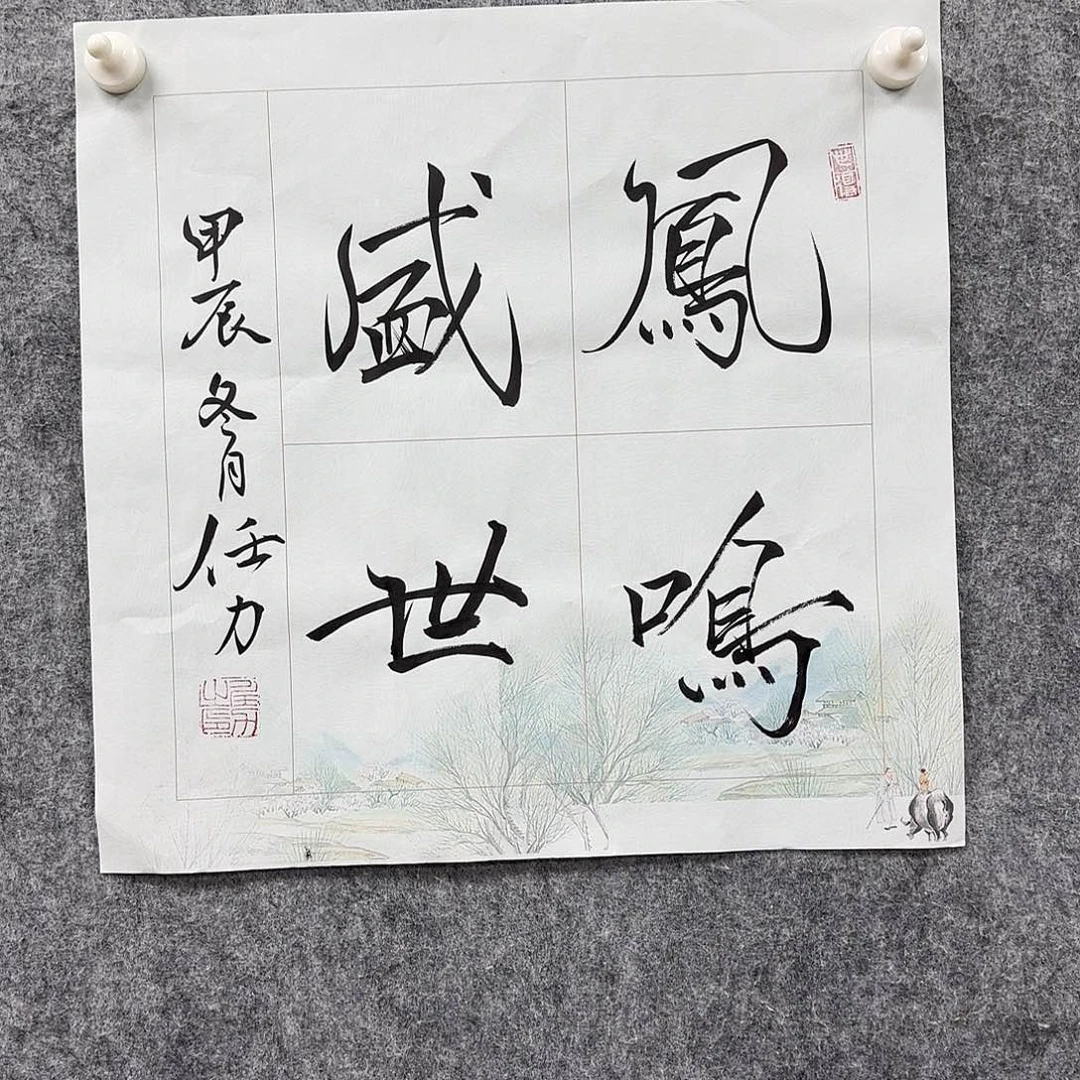 鳳鳴
盛世
甲辰冬月任力